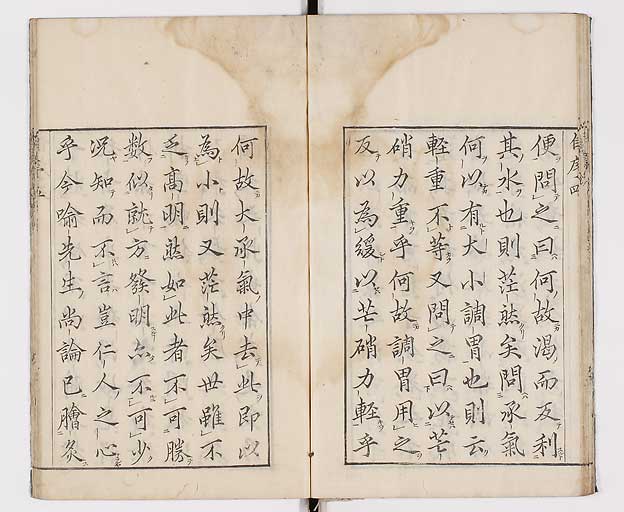 便問之曰何故渴而反利
其水也則茫然矣問承氣
何以有大小調胃也則云
輕重不等又問之曰以芒
硝力重乎何故調胃用之
反以為緩以芒硝力輕乎
何故大承氣中去此即以
為小則又茫然矣世雖不
乏高明然如此者不可勝
數似就方發明亦不可少
況知而不言豈仁人之心
乎今喻先生尚論已膾炙